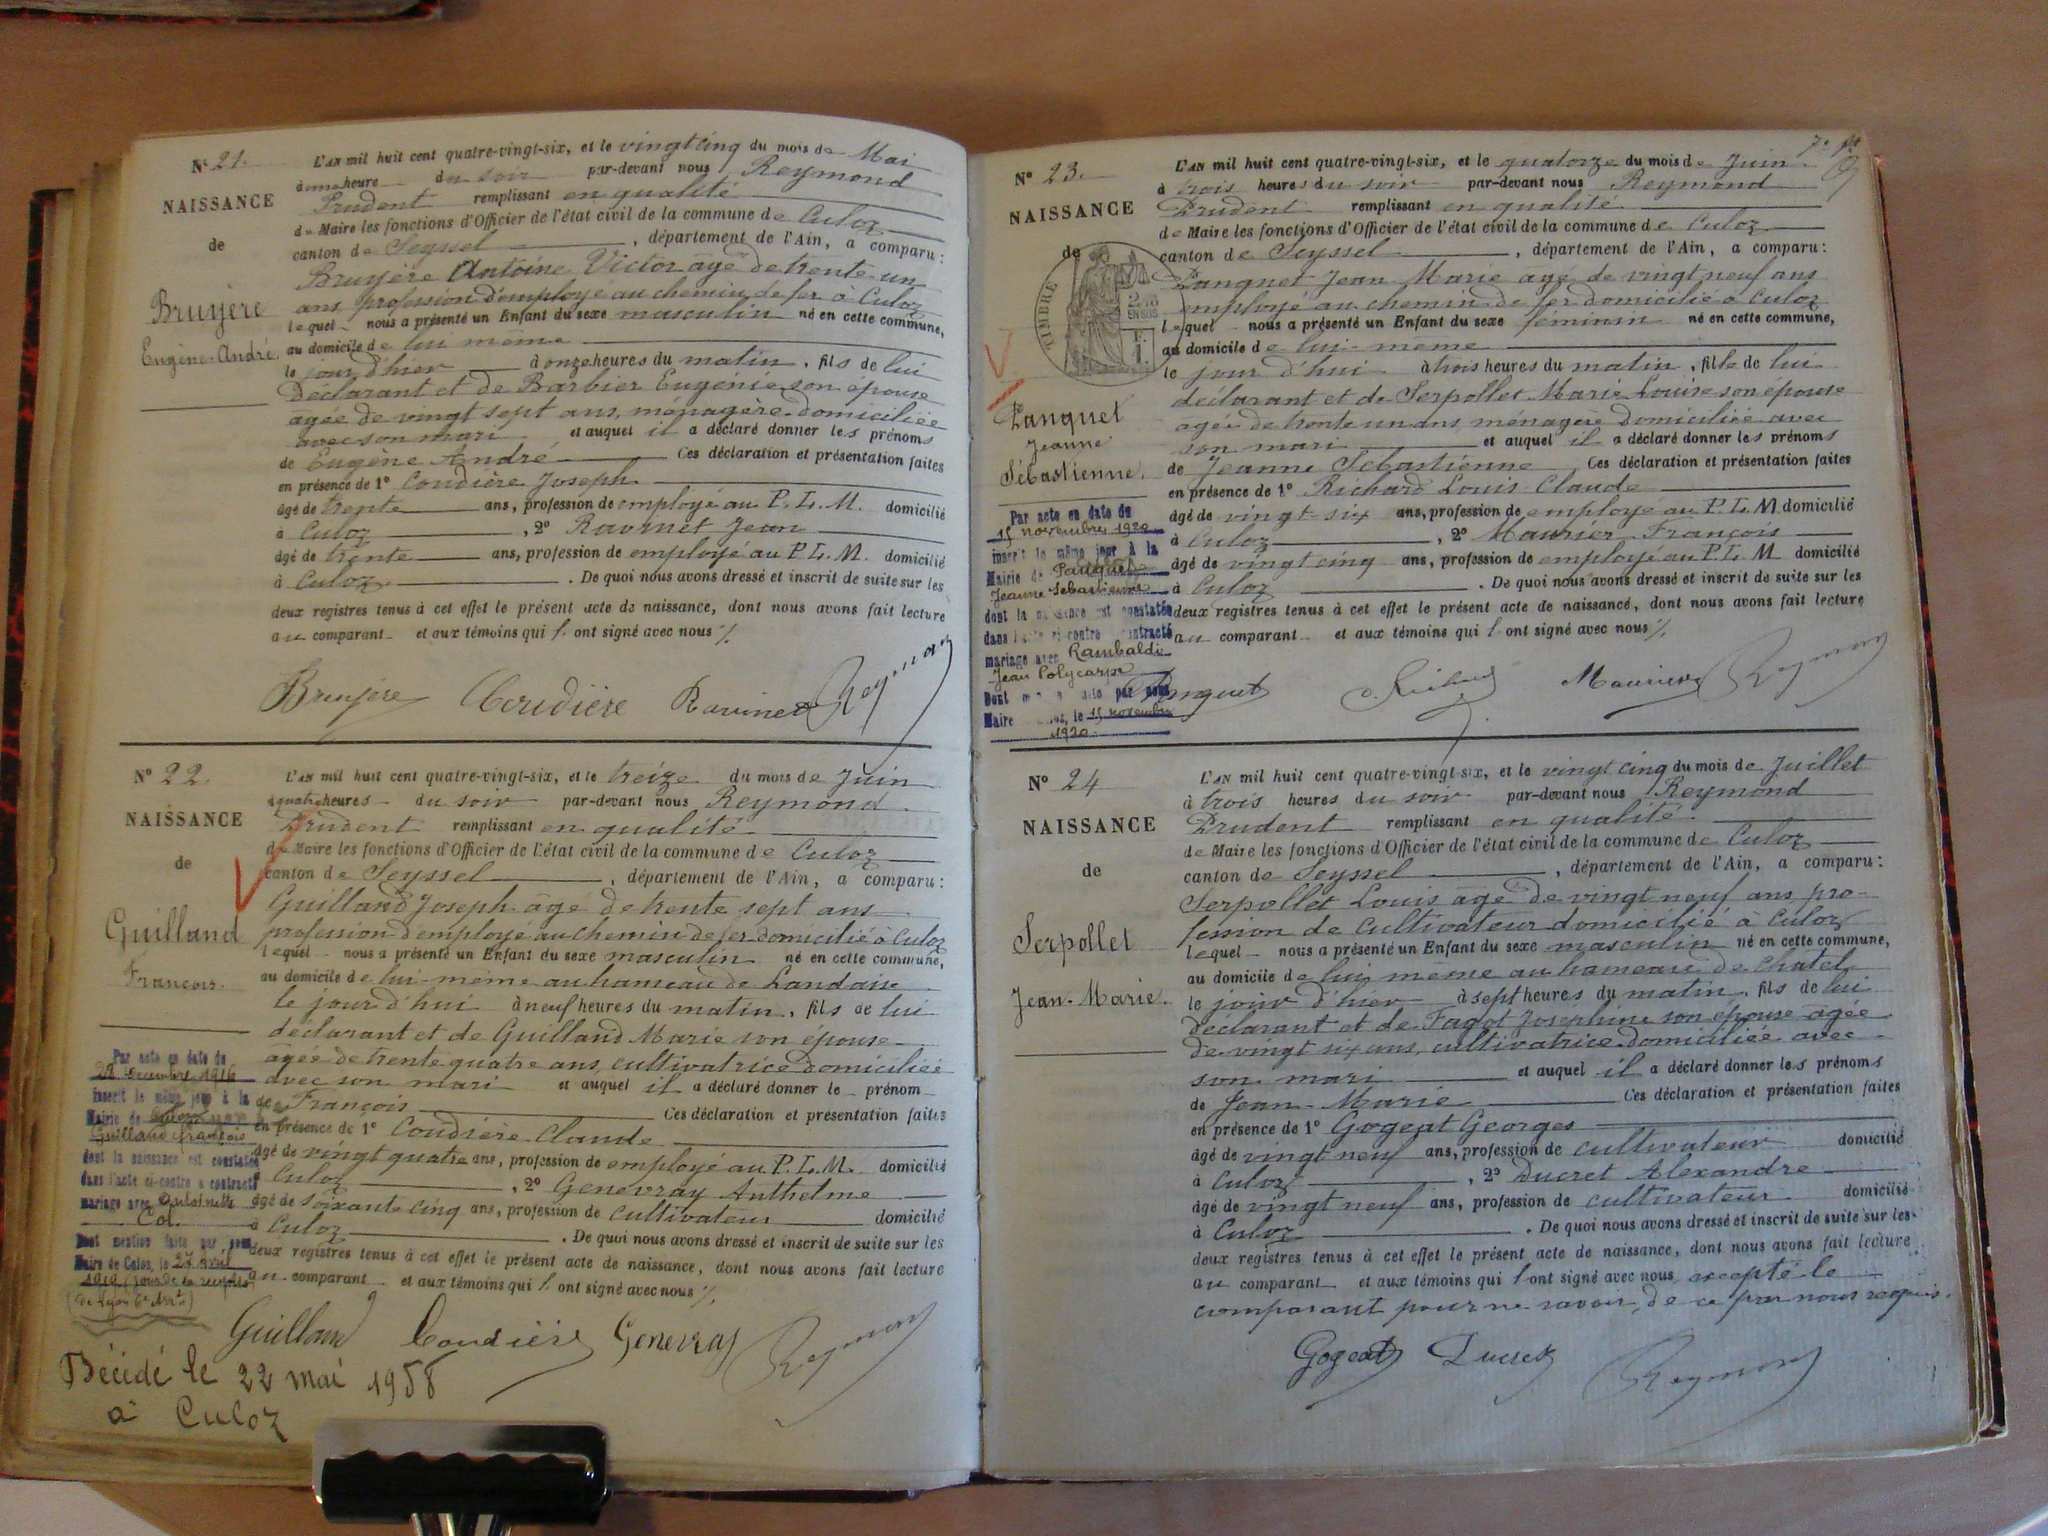 N° 21.
NAISSANCE
de
Bruyère
Eugène André.
L'AN mil huit cent quatre-vingt-six, et le vingt cinq du mois de Mai
à une heure du soir par-devant nous Reymond
Prudent remplissant en qualité
de Maire les fonctions d'Officier de l'état civil de la commune de Culoz
canton de Seyssel, département de l'Ain, a comparu:
Bruyère Antoine Victor âgé de trente un
ans profession d'employé au chemin de fer à Culoz
lequel nous a présenté un Enfant du sexe masculin né en cette commune,
au domicile de lui même
le jour d'hier à onze heures du matin, fils de lui
Déclarant et de Barbier Eugénie son épouse
agée de vingt sept ans, ménagère domiciliée
avec son mari et auquel il a déclaré donner les prénoms
de Eugène André Ces déclaration et présentation faites
en présence de 1° Coudière Joseph
âgé de trente ans, profession de employé au P. L. M. domicilié
à Culoz, 2° Ravinet Jean
âgé de trente ans, profession de employé au P. L. M. domicilié
à Culoz. De quoi nous avons dressé et inscrit de suite sur les
deux registres tenus à cet effet le présent acte de naissance, dont nous avons fait lecture
au comparant et aux témoins qui l'ont signé avec nous ./.
Bruyère Coudière Ravinet Reymond
N° 22.
NAISSANCE
de
Guilland
François.
L'AN mil huit cent quatre-vingt-six, et le treize du mois de Juin
à quatre heures du soir par-devant nous Reymond
Prudent remplissant en qualité
de Maire les fonctions d'Officier de l'état civil de la commune de Culoz
canton de Seyssel, département de l'Ain, a comparu:
Guilland Joseph âgé de trente sept ans
profession d'employé au chemin de fer domicilié à Culoz
lequel nous a présenté un Enfant du sexe masculin né en cette commune,
au domicile de lui-même au hameau de Landaise
le jour d'hui à neuf heures du matin, fils de lui
déclarant et de Guilland Marie son épouse
âgée de trente quatre ans, cultivatrice domiciliée
avec son mari et auquel il a déclaré donner le prénom
de François Ces déclaration et présentation faites
en présence de 1° Coudière Claude
âgé de vingt quatre ans, profession de employé au P. L. M. domicilié
à Culoz, 2° Genevray Anthelme
âgé de soixante cinq ans, profession de cultivateur domicilié
à Culoz. De quoi nous avons dressé et inscrit de suite sur les
deux registres tenus à cet effet le présent acte de naissance, dont nous avons fait lecture
au comparant et aux témoins qui l'ont signé avec nous ./.
Par acte en date du
décembre 1916
inscrit le même jour à la
Mairie de
Guilland François
dont la naissance est constatée
dans l'acte ci-contre a contracté
mariage avec Antoinette
Col.
Dont mention faite par nous
Maire de Culoz, le 27 avril
1919 (jour de la reception
(de Lyon 6e Arrt)
Guilland Coudière Genevray Reymond
Décédé le 22 mai 1958
à Culoz
7e
N° 23.
NAISSANCE
de
TIMBRE
2/10
EN SUS
Panquet
Jeanne
Sébastienne.
L'AN mil huit cent quatre-vingt-six, et le quatorze du mois de Juin
à trois heures du soir par-devant nous Reymond
Prudent remplissant en qualité
de Maire les fonctions d'Officier de l'état civil de la commune de Culoz
canton de Seyssel, département de l'Ain, a comparu:
Panquet Jean Marie agé de vingt neuf ans
employé au chemin de fer domicilié à Culoz
lequel nous a présenté un Enfant du sexe féminin né en cette commune,
au domicile de lui-même
le jour d'hui à trois heures du matin, fille de lui
déclarant et de Serpollet Marie Louise son épouse
agée de trente un ans ménagère domiciliée avec
son mari et auquel il a déclaré donner les prénoms
de Jeanne Sébastienne Ces déclaration et présentation faites
en présence de 1° Richard Louis Claude
âgé de vingt-six ans, profession de employé au P. L. M. domicilié
à Culoz, 2° Maurier François
âgé de vingt cinq ans, profession de employé au P. L. M. domicilié
à Culoz. De quoi nous avons dressé et inscrit de suite sur les
deux registres tenus à cet effet le présent acte de naissance, dont nous avons fait lecture
au comparant et aux témoins qui l'ont signé avec nous ./.
Par acte en date du
15 novembre 1920
inscrit le même jour à la
Mairie de Panquet
Jeanne Sébastienne
dont la naissance est constatée
dans l'acte ci-contre contracté
mariage avec Rambaldi
Jean Polycarpe
Dont mention faite par nous
Maire de Culoz, le 15 novembre
1920.
Panquet Richard Maurier Reymond
N° 24
NAISSANCE
de
Serpollet
Jean-Marie.
L'AN mil huit cent quatre-vingt-six, et le vingt cinq du mois de Juillet
à trois heures du soir par-devant nous Reymond
Prudent remplissant en qualité
de Maire les fonctions d'Officier de l'état civil de la commune de Culoz
canton de Seyssel, département de l'Ain, a comparu:
Serpollet Louis âgé de vingt neuf ans pro-
fession de cultivateur domicilié à Culoz
lequel nous a présenté un Enfant du sexe masculin né en cette commune,
au domicile de lui même au hameau de Chatel
le jour d'hier à sept heures du matin, fils de lui
déclarant et de Fagot Joséphine son épouse agée
de vingt six ans, cultivatrice domiciliée avec
son mari et auquel il a déclaré donner les prénoms
de Jean-Marie Ces déclaration et présentation faites
en présence de 1° Gogeat Georges
âgé de vingt neuf ans, profession de cultivateur domicilié
à Culoz, 2° Ducret Alexandre
âgé de vingt neuf ans, profession de cultivateur domicilié
à Culoz. De quoi nous avons dressé et inscrit de suite sur les
deux registres tenus à cet effet le présent acte de naissance, dont nous avons fait lecture
au comparant et aux témoins qui l'ont signé avec nous excepté le
comparant pour ne savoir, de ce par nous requis.
Gogeat Ducret Reymond